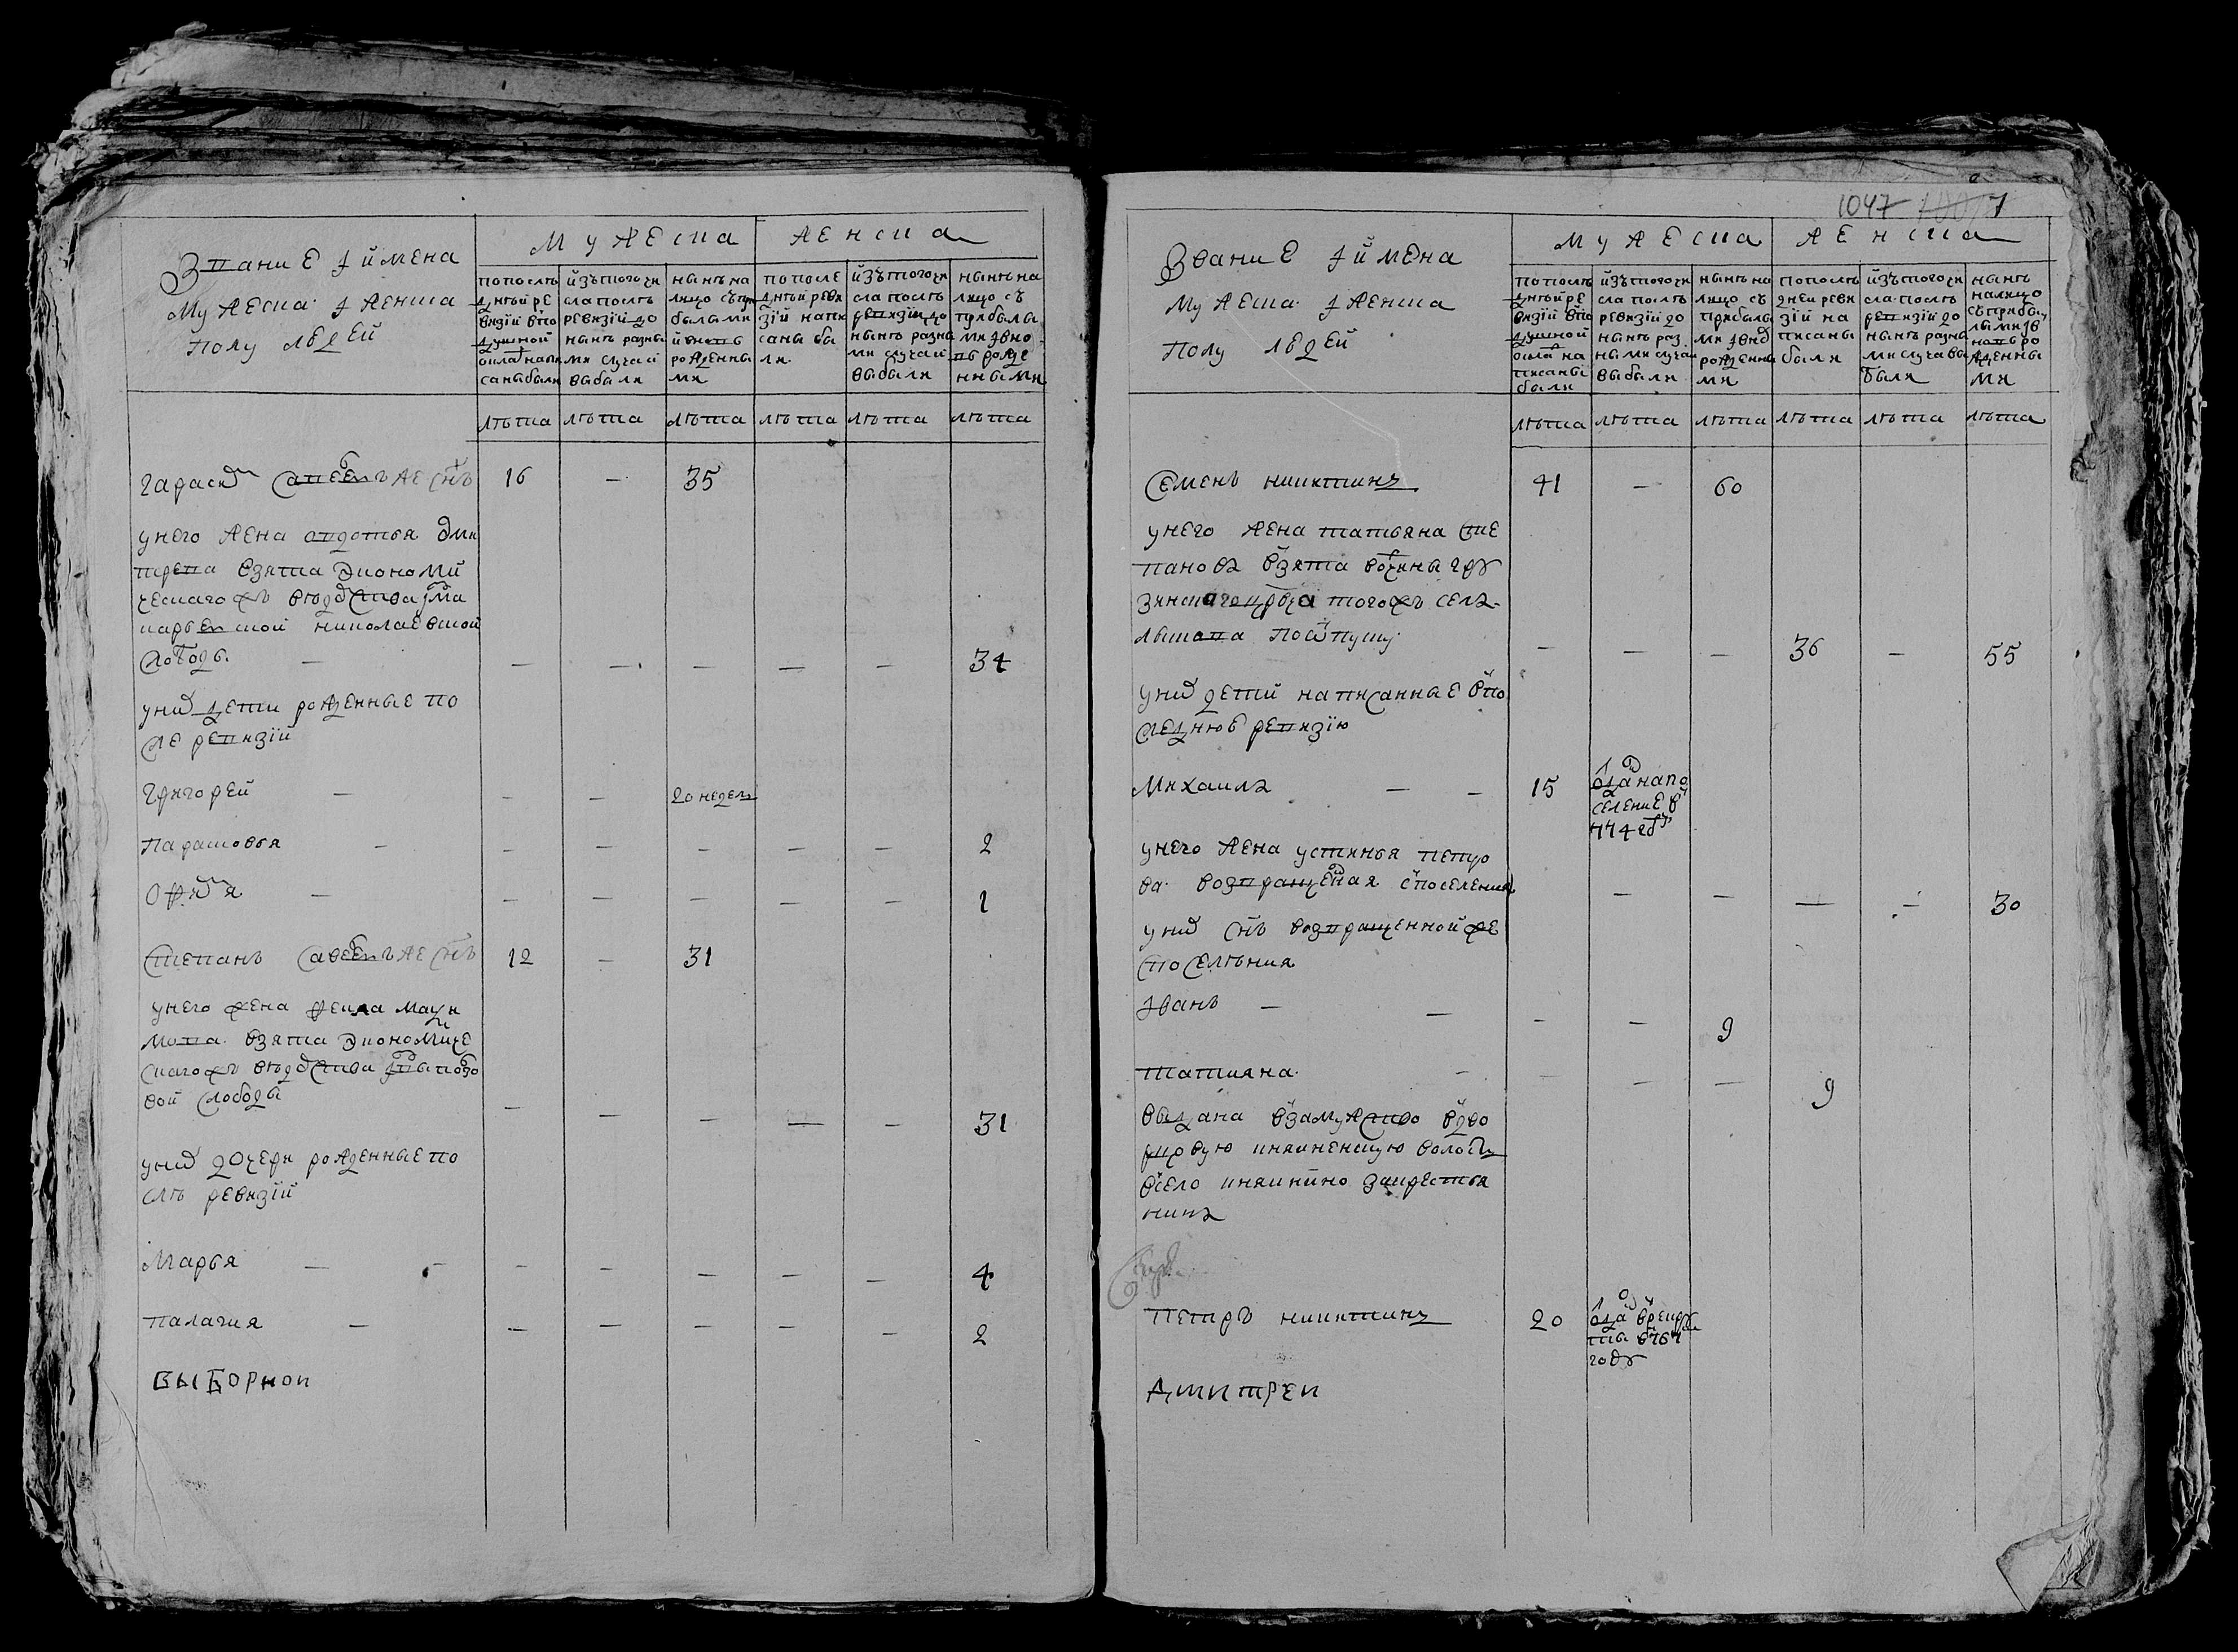 Звание и имена
Мужеска и женска
полу людей
мужеска
женска
по последней ревизии в подушной оклад написаны были
изъ того числа после ревизии до ныне разными случаи выбыли
ныне на лицо съ прибылыми и вновь рожденными
по последней ревизии написаны были
изъ того числа после ревизии до ныне разными случаи выбыли
ныне на лицо съ прибылыми и вновь рожденными
лѣта лѣта лѣта лѣта лѣта лѣта
Гарасимъ Савельевъ же сынъ 16 — 35
у него жена авдотья дми
трева взята Экономи
ческаго жъ ведомства
николаевской
слободы — — — — — — 34
у них дети рожденные по
сле ревизий
Григорей — — — 20 недель
Парасковья — — — — — — 2
— — — — — — 1
Степанъ Савельевъ же сынъ 12 — 31
у него жена Фекла Макси
мова взята Экономиче
скаго жъ ведомства
вой слободы — — — — — 31
у них дочери рожденные по
слѣ ревизий
Марья — — — — — — — 4
палагия — — — — — — 2
выборнои
1047
Звание и имена
Мужеска и женска
полу людей
мужеска
женска
по последней ревизии в подушной оклад написаны были
изъ того числа после ревизии до ныне разными случаи выбыли
ныне на лицо съ прибылыми и вновь рожденными
по последней ревизии написаны были
изъ того числа после ревизии до ныне разными случаи выбыли
ныне на лицо съ прибылыми и вновь рожденными
лѣта лѣта лѣта лѣта лѣта лѣта
Семенъ никитинъ 41 — 60
у него жена татьяна сте
панова взята вотчины
того жъ села
по отпуску — — — 36 — 55
у них детй написанные в по
следнюю ревизию
Михаила — — 15 отдан на по
селение в
774 году
у него жена устинья петро
ва возвращеная с поселения — — — — 30
у них сынъ возвращенной же
с поселѣния
Иванъ — — — — 9
татияна — — — — 9
выдана в замужство в дво
рцовую волость
в село за крестья
нина
Петръ никитинъ 20 отдан в рекру
ты в 767
году
дмитреи